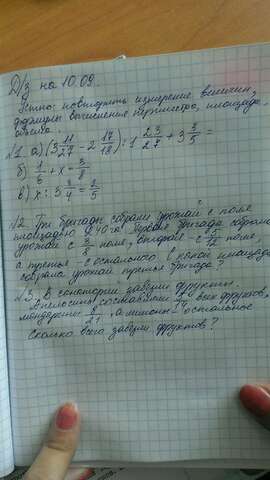 Д/з на 10.09.
Устно: повторить измерение величин,
формулы вычисления периметра, площади
объёма.
№1 а) (3 11/27 - 2 17/18) : 1 23/27 + 3 3/5 =
б) 1/6 + x = 3/8
в) x : 3 3/4 = 2/5
№2. Три бригады собрали урожай с поля
площадью 240 га. Первая бригада собрала
урожай с 3/8 поля, вторая - с 5/12 поля,
а третья - с остального. С какой площади
собрала урожай третья бригада?
№3. В санаторий завезли фрукты.
Апельсины составили всех фруктов,
мандарины 8/21, а лимоны - остальное
Сколько всего завезли фруктов?